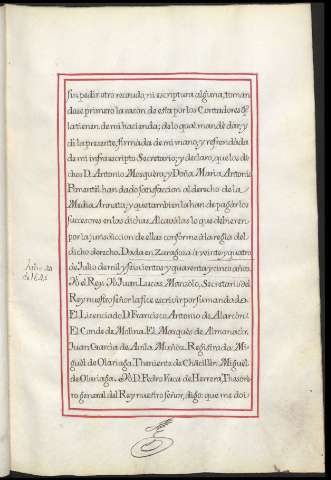 sin pedir otro recaudo, ni escriptura alguna, toman
dose primero la razón de esta por los Contadores q̃
la tienen de mi hacienda; de lo qual mandé dár, y
dí la presente, firmada de mi mano, y refrendada
de mi infraescripto Secretario; y declaro, que los di
chos D. Antonio Mosquera, y Doña Maria Antonia
Pimentél han dado satisfaccion al derecho de la
Media Annata; y que tambien la han de pagár los
succesores en las dichas Alcavalas lo que debieren
por la jurisdiccion de ellas conforme á la regla del
dicho derecho. Dada en Zaragoza á veinte y quatro
de Julio de mil y seiscientos y quarenta y cinco años
Yo el Rey. Yo Juan Lucas Manzólo, Secretario del
Rey nuestro señor la fice escrivir por su mandado.
El Licenciado D. Francisco Antonio de Alarcón.
El Conde de Molina. El Marqués de Almonacir.
Juan Garcia de Avila Muñoz. Registrada. Mi-
guél de Olariaga. Theniente de Chancillér. Miguél
de Olariaga. Yo D. Pedro Vaca de Herrera, Thesore
ro general del Rey nuestro señor, digo: que me doi
Año
de 1645